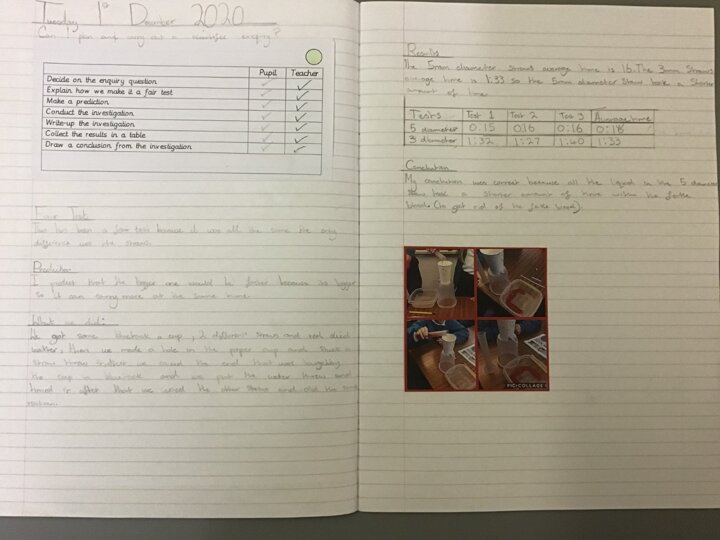 Tuesday 1st December 2020
Can I plan and carry out a scientific enquiry?
Pupil Teacher
Decide on the enquiry question
Explain how we make it a fair test
Make a prediction
Conduct the investigation
Write-up the investigation
Collect the results in a table
Draw a conclusion from the investigation
Fair Test
This has been a fair test because it was all the same the only
difference was the straws.
Prediction
I predict that the bigger one would be faster because its bigger
so it can carry more at the same time.
What we did:
We got some bluetack a cup, 2 different straws and red died
watter, then we made a hole in the paper cup and stuck a
straw threw it after we the end that was
the cup in bluetack and we put the water threw and
timed it after that we used the other straw and did the same
Results
The 5mm diameter straws average time is 16. The 3mm straws
average time is 1:33 so the 5mm diameter straw took a shorter
amount of time
Tests Test 1 Test 2 Test 3 Average time
5 diameter 0:15 0:16 0:16
3 diameter 1:32 1:27 1:40 1:33
Conclusion
My conclusion was correct because all the liquid in the 5 diameter
straw took a shorter amount of time within the
blood. (to get rid of the fake blood).
PIC•COLLAGE